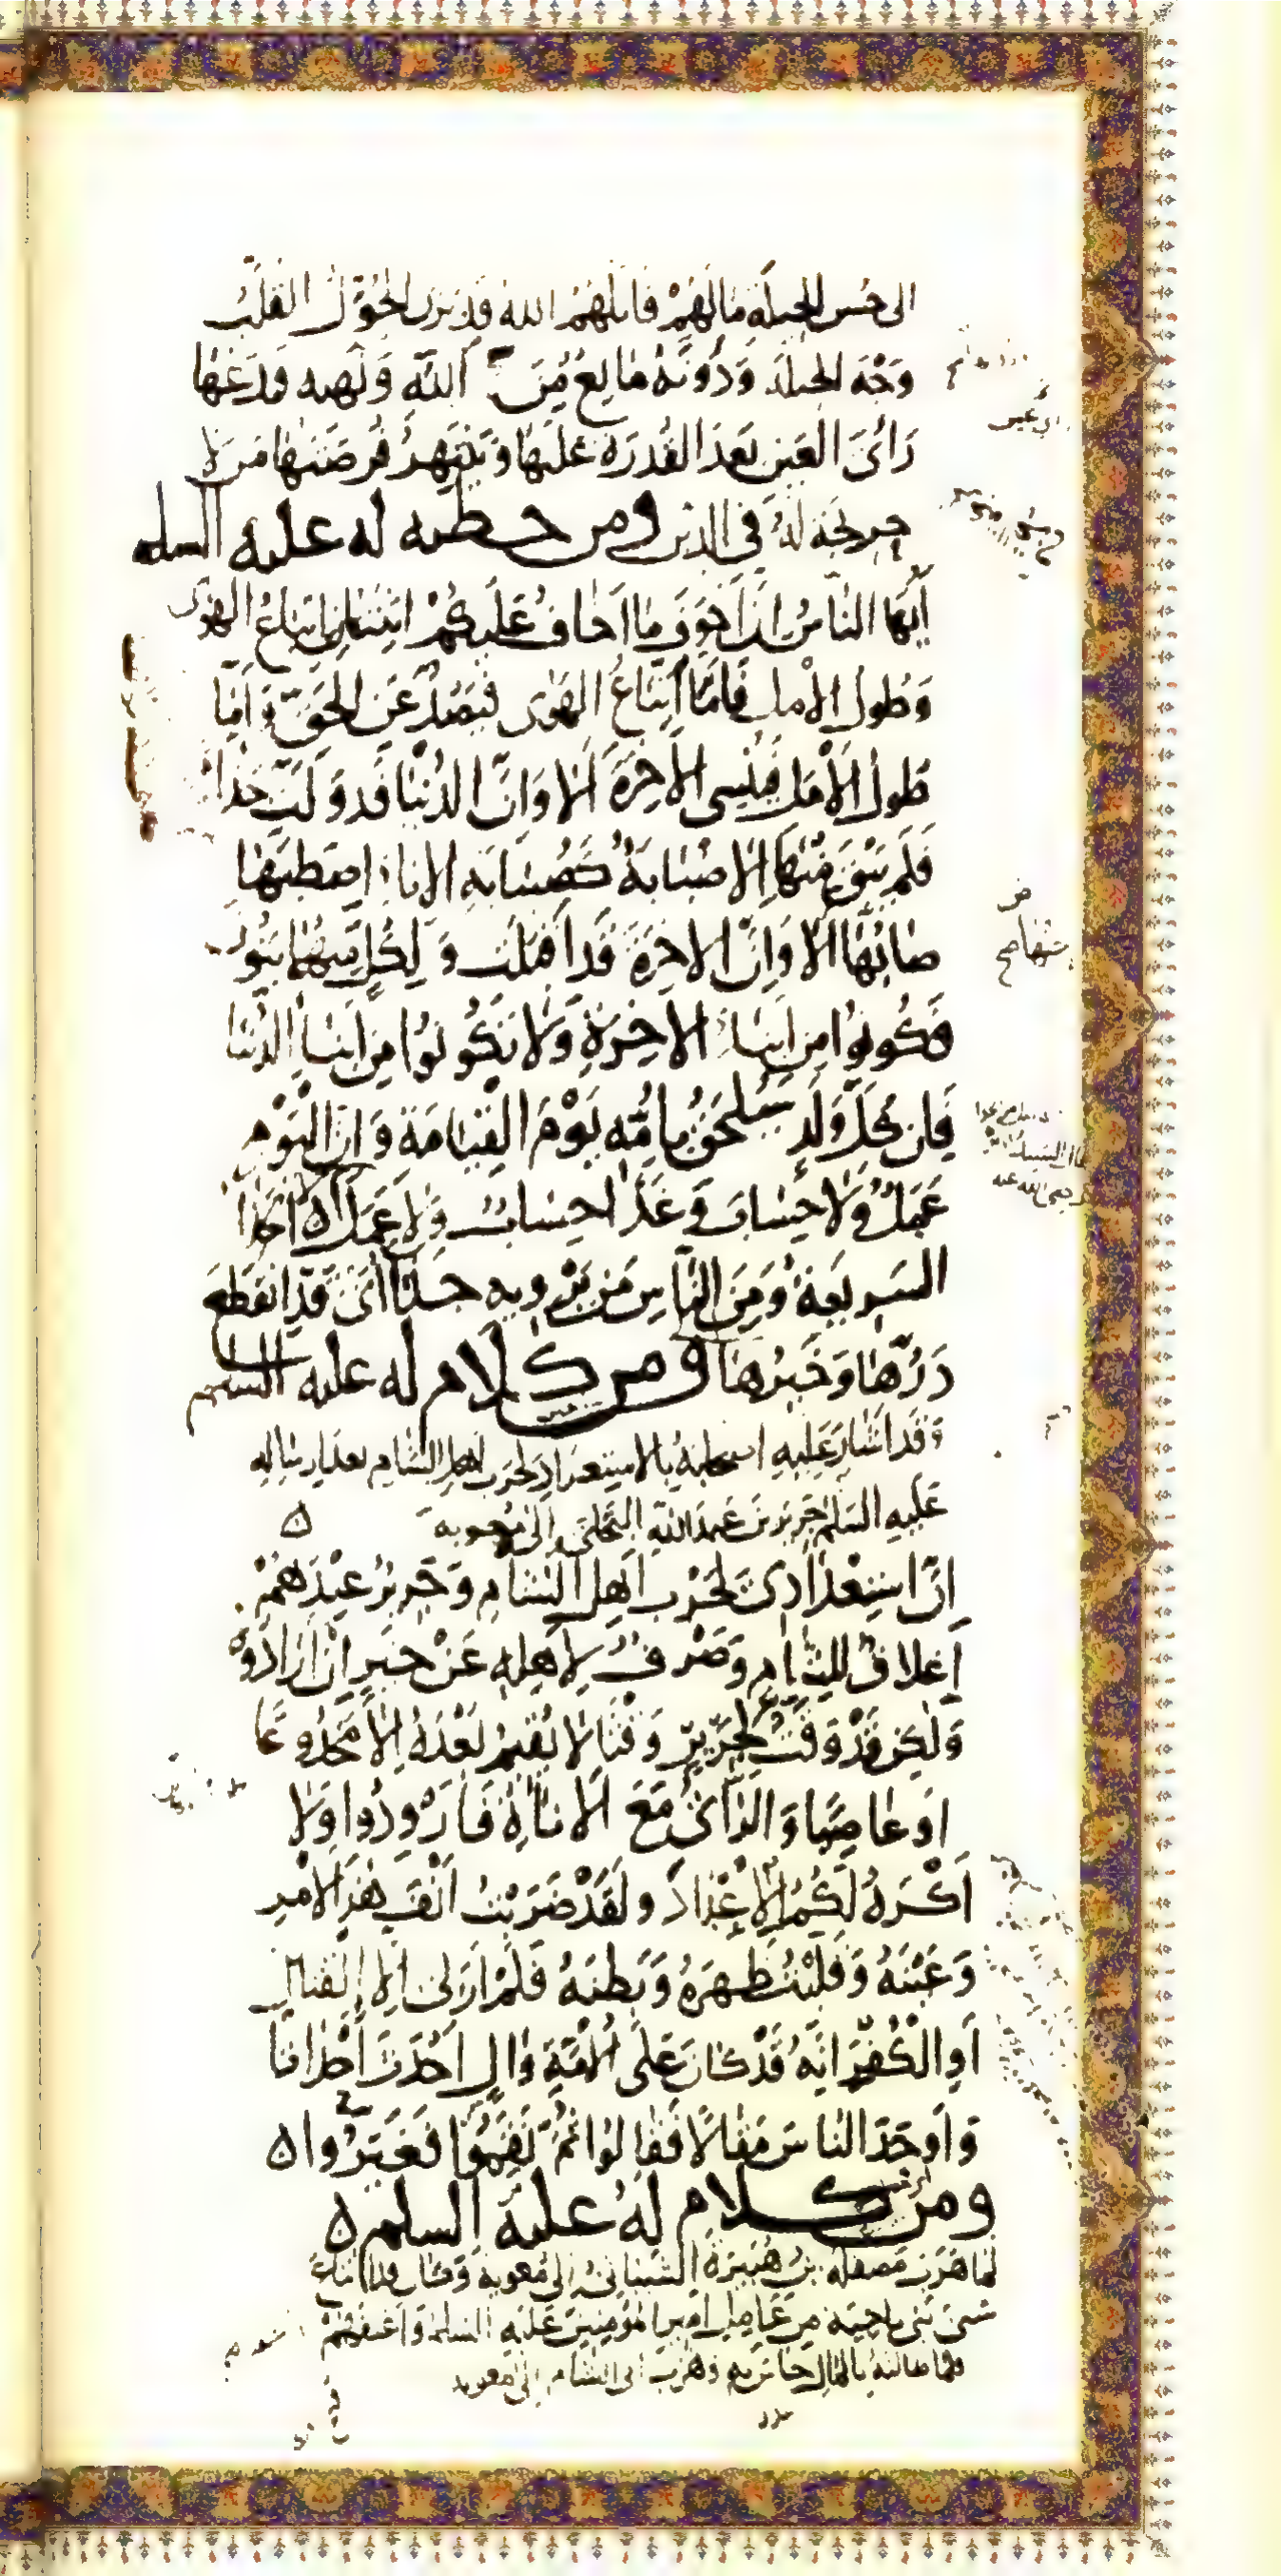 الى حُسن الحِيلَة مَا لَهُمْ قَاتَلَهُمُ اللهُ قَدْ يَرَى الْحُوَّلُ القُلَّبُ
وَجْهَ الحِيلَة وَدُونَهُ مَانِعٌ مِنَ اللهِ وَنَهيه فَيَدَعُهَا
رَأىَ العَيْن بَعدَ القُدرَة عَلَيهَا وَيَنتَهِزُ فُرصَتَهَا مَن لا
حرِيجَةَ لَهُ في الدّين ومن خطبه له عليه السلم
أيُّهَا النّاسُ إنّ أخوَفَ مَا أخافُ عَلَيكُمُ اثنَتَانِ اتباعُ الهَوَى
وَطُولُ الأمل فَأمّا اتِّبَاعُ الهَوَى فَيَصُدُّ عَن الحَقّ وَأمّا
طُولُ الأمَل فيُنسِى الآخِرَةَ ألا وَإنّ الدُنيَا قَد وَلّت حَذّاءَ
فَلَم يَبْقَ مِنْهَا إلا صُبَابَةٌ كَصُبَابَةِ الاناءِ اصطَبّهَا
صَابُّهَا ألا وَإنّ الآخِرَةَ قَد أقبَلَت وَلِكُلٍّ مِنهُمَا بَنُونَ
فَكُونُوا مِن أبنَاءِ الاخِرَةِ وَلا تَكُونُوا مِن أبنَاءِ الدُّنيَا
فَإن كُلَّ وَلَدٍ سَيُلحَقُ بِأمّهِ يَوْمَ القِيَامَةِ وَإنّ اليَوْمَ
عَمَلٌ وَلا حِسَابَ وَغَدًا حِسَابٌ وَلا عَمَلَ الحَذّاءُ
السَرِيعَةُ وَمِنَ النّاسِ مَن يَرْوِيهِ جَذّاءَ أي قَد انقَطَعَ
دَرُّهَا وَخَيرُهَا ومن كلام له عليه السلم
وَقَد أشَارَ عَلَيهِ أصحَابُهُ بالاستِعدَادِ لِحَرب أهلِ الشّام بعدَ إرسَالِهِ
عَلَيهِ السَلم جَرِيرَ بنَ عَبدِ اللهِ البَجَلي إلى مُعوية
إنّ استِعْدَادِى لِحَرْبِ أهلِ الشّام وَجَرِيرٌ عِنْدَهُمْ
إغلاقٌ لِلشّام وَصَرْفٌ لِأهلِهِ عَنْ خيرٍ إنْ أرَادُوهُ
وَلكِن قَدْ وَقّتُّ لِجَرِيرٍ وَقْتًا لا يُقيمُ بَعْدَهُ إلا مَخدُوعًا
أو عَاصِيًا وَالرَّأىُ مَعَ الأنَاةِ فَأرْوِدُوا وَلا
أكْرَهُ لَكُمُ الإعْدَادَ ولَقَدْ ضَرَبْتُ أنْفَ هذَا الأمْرِ
وَعَيْنَهُ وَقَلّبْتُ ظَهرَهُ وَبَطنَهُ فَلَمْ أرَ لى إلا القِتَالَ
أوِ الكُفْرَ إنّهُ قَدْ كَانَ عَلَى الأمّةِ وَالٍ أحْدَثَ أحْدَاثًا
وَأوْجَدَ النّاسَ مَقَالًا فَقَالُوا ثُمّ نَقَمُوا فَغَيّرُوا
ومن كلام لهُ عليه السلم
لمّا هَرَبَ مَصقَلَةُ بنُ هُبَيْرَةَ الشّيبَانيّ إلى مُعوية وَكان قد ابتَاعَ
سَبىَ بَنى نَاجِيَةَ مِن عَامِلِ أمِيرِ المُؤمِنينَ عَلَيهِ السلم وَأعتَقَهُمْ
فلمّا طَالبَهُ بِالمَالِ خَاسَ بِهِ وَهَرَبَ الى الشّام إلى مُعوية